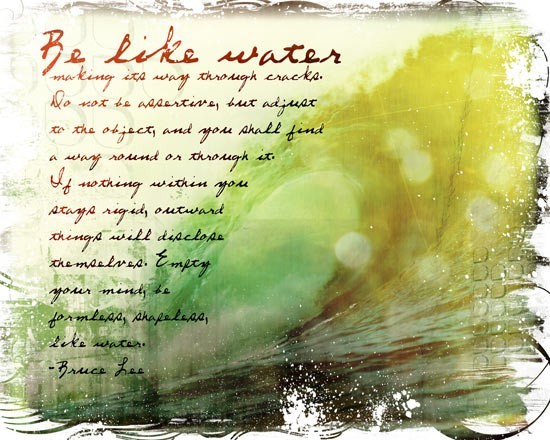 Be like water
making its way through cracks.
Do not be assertive, but adjust
to the object, and you shall find
a way round or through it.
If nothing within you
stays rigid, outward
things will disclose
themselves. Empty
your mind, be
formless, shapeless,
like water.
-Bruce Lee